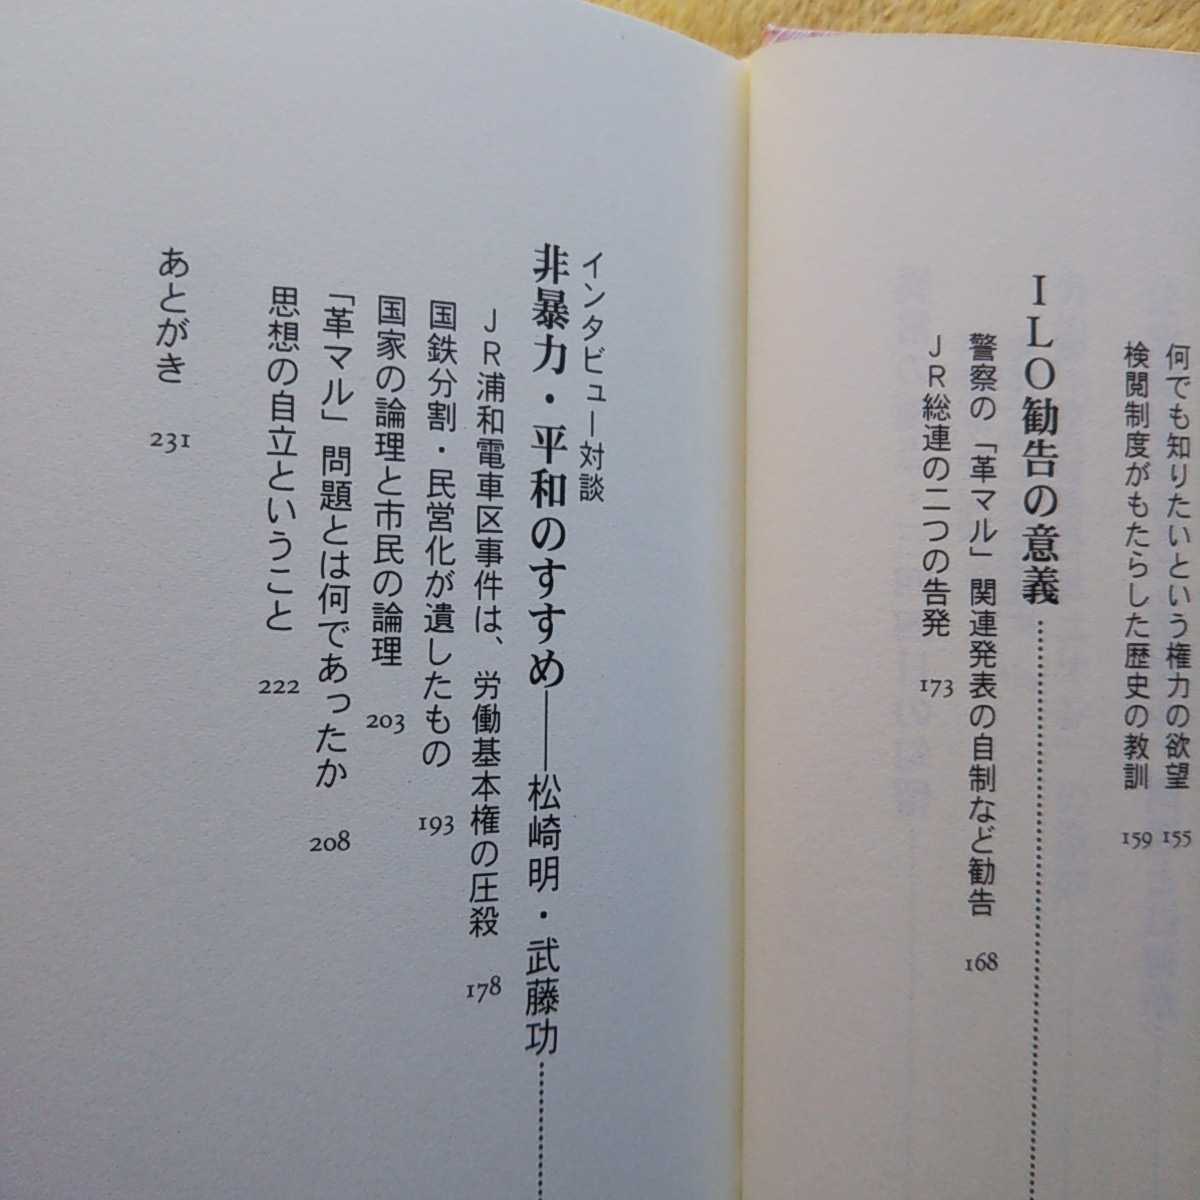 何でも知りたいという権力の欲望 155
検閲制度がもたらした歴史の教訓 159
ILO勧告の意義
警察の「革マル」関連発表の自制など勧告 168
JR総連の二つの告発 173
インタビュー対談
非暴力・平和のすすめ──松崎明・武藤功
JR浦和電車区事件は、労働基本権の圧殺 178
国鉄分割・民営化が遺したもの 193
国家の論理と市民の論理 203
「革マル」問題とは何であったか 208
思想の自立ということ 222
あとがき 231